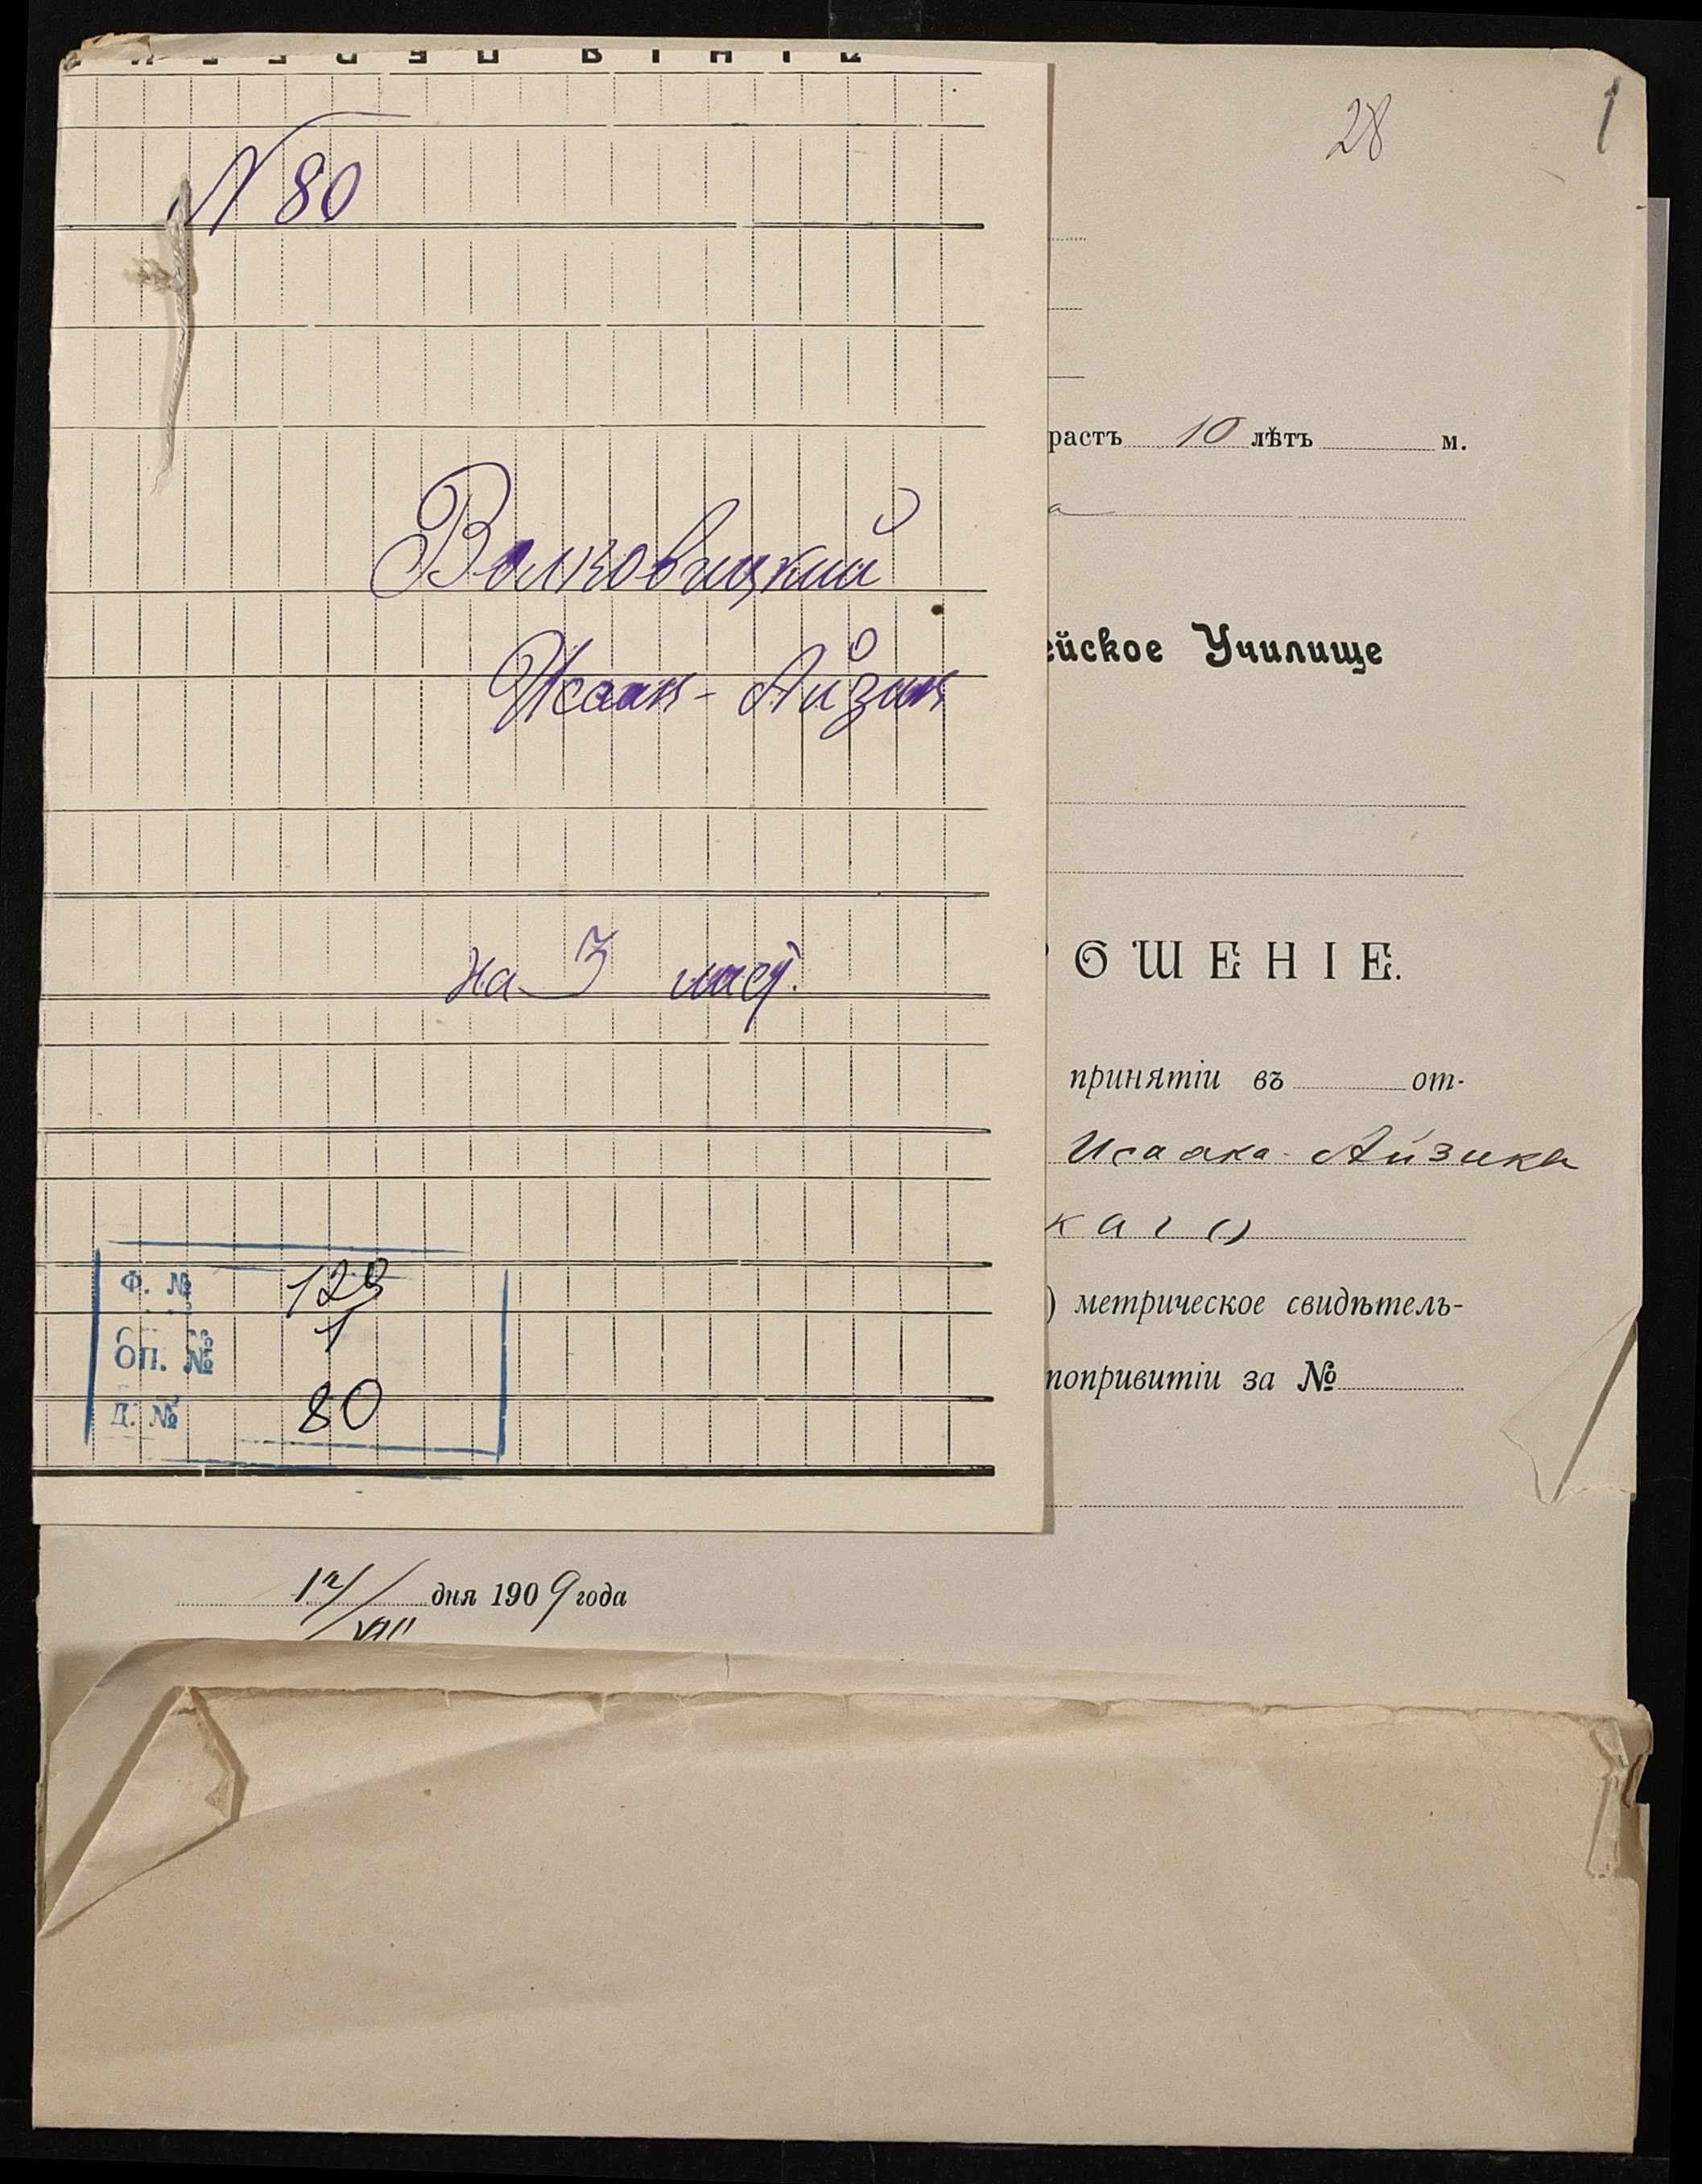 N 80
Волковицкий
Исаак-Айзик
на 3 лист.
Ф. № 129
ОП. № 1
Д. № 80
28
1
растъ 10 лѣтъ м.
а
ейское Училище
ОШЕНІЕ.
принятіи въ от-
Исаака-Айзика
каго
) метрическое свидѣтель-
попривитіи за №
12/VIII дня 1909 года